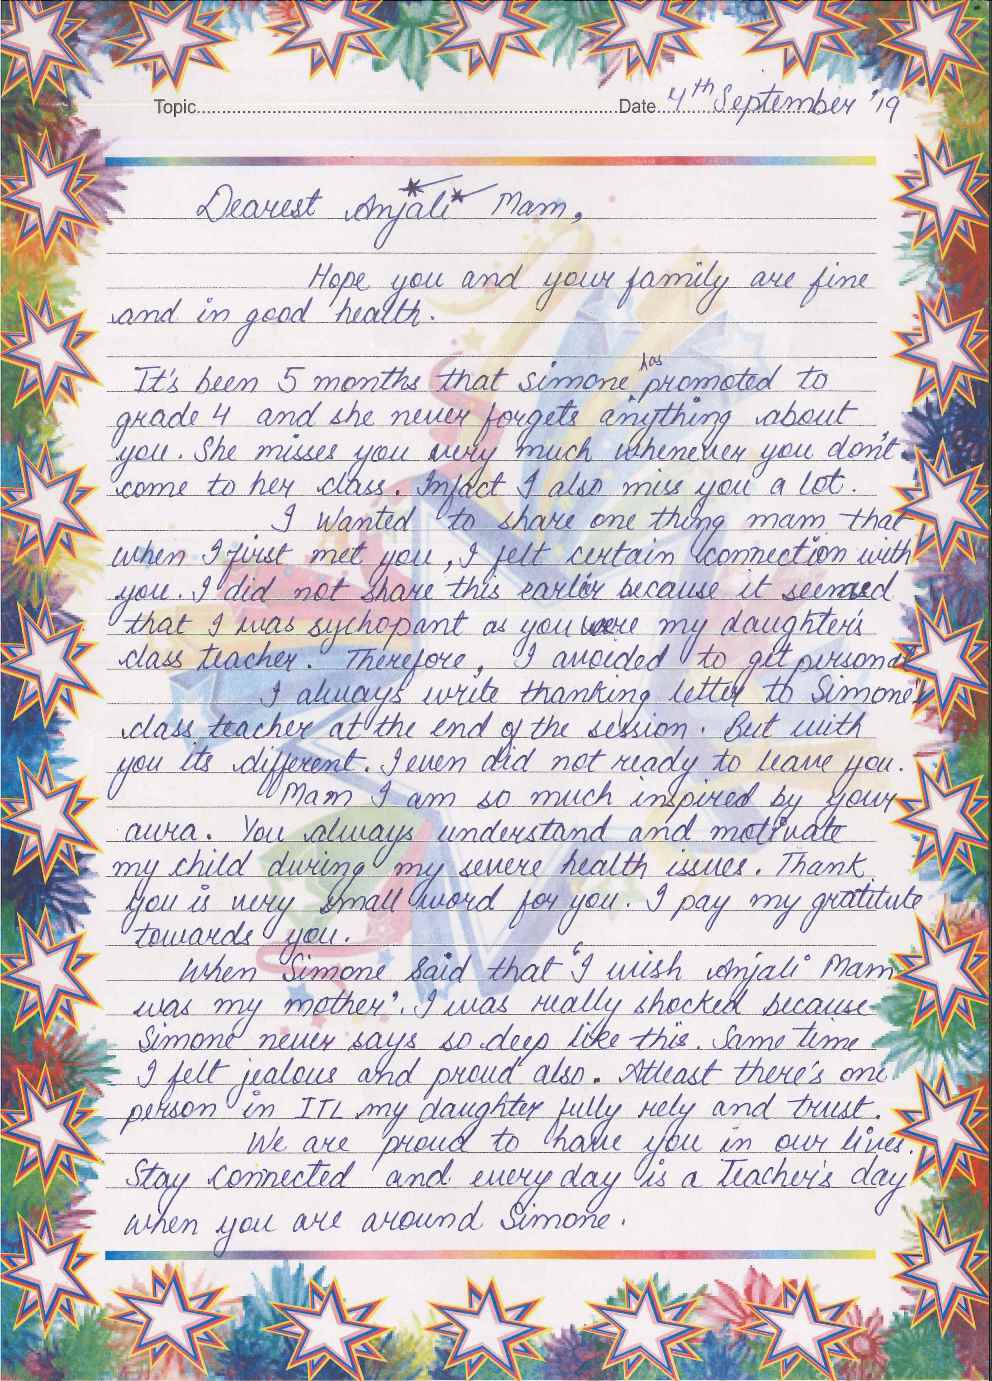 Topic........................................................Date 4th September '19
Dearest Anjali Mam,
Hope you and your family are fine
and in good health.
It's been 5 months that simone has promoted to
grade 4 and she never forgets anything about
you. She misses you very much whenever you don't
come to her class. Infact I also miss you a lot.
I wanted to share one thing mam that
when I first met you, I felt certain connection with
you. I did not share this earlier because it seemed
that I was sychopant as you were my daughter's
class teacher. Therefore, I avoided to get personal
I always write thanking letter to Simone's
class teacher at the end of the session. But with
you its different. I even did not ready to leave you.
Mam I am so much inspired by your
aura. You always understand and motivate
my child during my severe health issues. Thank
you is very small word for you. I pay my gratitute
towards you.
When Simone said that 'I wish Anjali Mam
was my mother'. I was really shocked because
Simone never says so deep like this. Same time
I felt jealous and proud also. Atleast there's one
person in ITL my daughter fully rely and trust.
We are proud to have you in our lives.
Stay connected and every day is a Teacher's day
when you are around Simone.